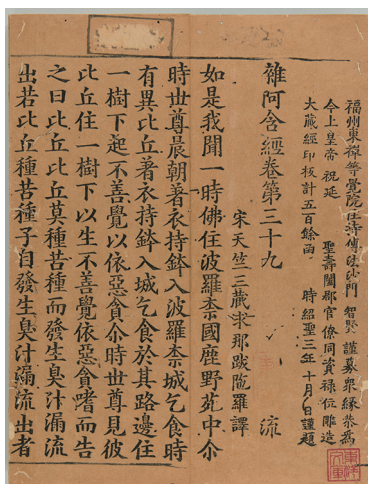 福州東禪等覺院住持傳法沙門　智賢　謹募衆緣恭為
今上皇帝　祝延　聖壽闔郡官僚同資禄位雕造
大藏經印板計五百餘函　時紹聖三年十月　日謹題
雜阿含經卷第三十九　流
宋天竺三藏求那跋陁羅譯
如是我聞一時佛住波羅柰國鹿野苑中尒
時世尊晨朝著衣持鉢入波羅柰城乞食時
有異比丘著衣持鉢入城乞食於其路邊住
一樹下起不善覺以依惡貪尒時世尊見彼
比丘住一樹下以生不善覺依惡貪嗜而告
之曰比丘比丘莫種苦種而發生臭汁漏流
出若比丘種苦種子自發生臭汁漏流出者